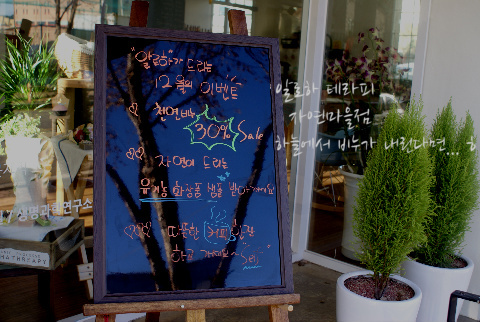 "알로하"가 드리는
12월의 이벤트
천연비누
30% Sale
자연이 드리는
유기농 화장품 샘플 받아가세요
따뜻한 커피 한잔
하고 가세요~
알로하 테라피
자연마을점
하늘에서 비누가 내린다면...